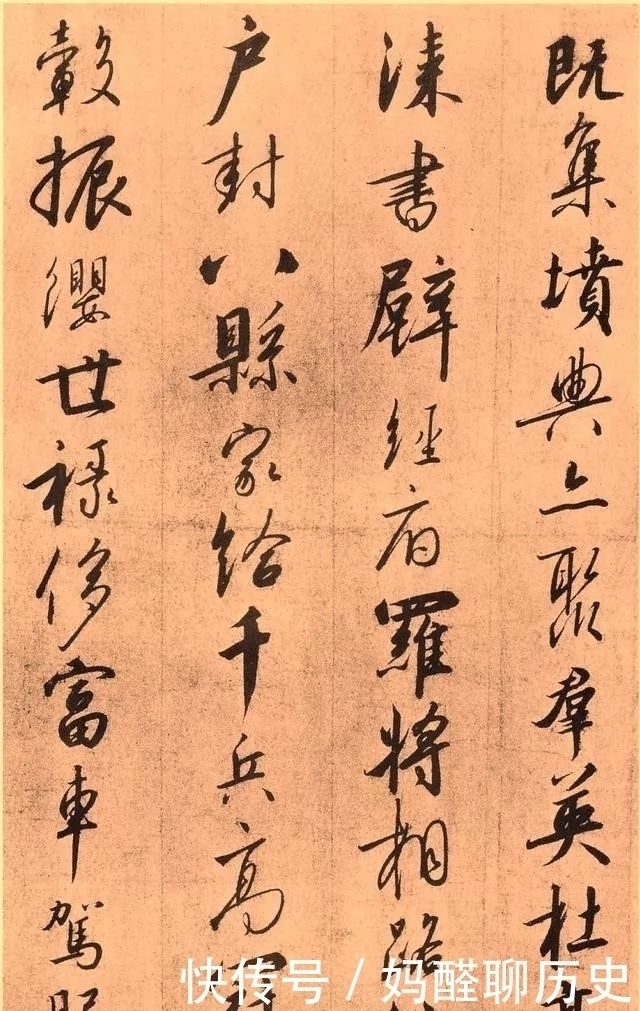 既集墳典亦聚羣英杜
漆書壁經府羅將相路
戶封八縣家給千兵高
轂振纓世祿侈富車駕
快传号 / 妈醛聊历史